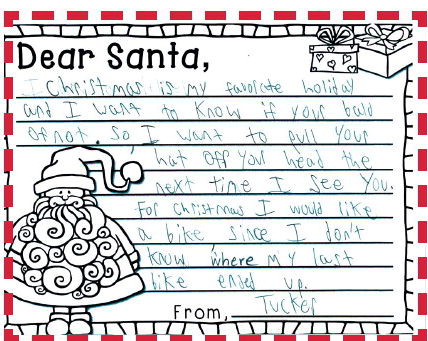 Dear Santa,
I Christmas is my favorite holiday
and I want to know if your bald
or not. So, I want to pull your
hat off your head the
next time I see you.
For christmas I would like
a bike, since I don't
know where my last
bike ended up.
From, Tucker